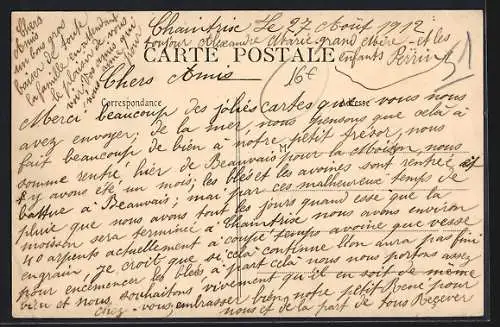 Chers
Amis
un bon gros
baiser de toute
la famille en attendant
le plaisir de vous
voir
Chaintrix Le 27 Août 1912
Bonjour Alexandre Marie grand Mère et les
enfants Perrin
CARTE POSTALE
16f
Chers Amis
Correspondance
Adresse
Merci beaucoup des jolies cartes que vous nous
avez envoyer; de la mer, nous pensons que celà à
fait beaucoup de bien à notre petit trévor, nous
somme rentré hier de Beauvais pour la Moison nous
y avons été un mois; les blés et les avoines sont rentré et
battue à Beauvais; mai par ces malheureux temps de
pluie que nous avons tout les jours quand esse que la
moisson sera terminé à Chaintrix nous avons environ
40 arpents actuellement à coupé temps avoine que vesse
engrain, Je croit que si celà continue l'on aura pas fini
pour encemencer les blés à part celà nous nous portons assez
bien et nous souhaitons vivement qu'il en soit de même
chez vous, embrasser bien notre petit René pour
nous et de la part de tous Recever